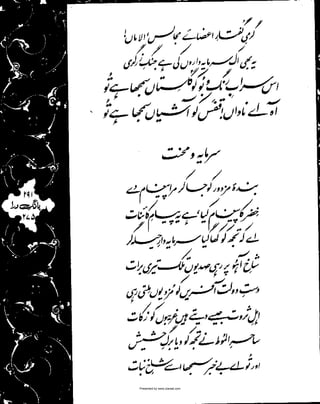 گرمیِ گفتارِ اعضائے مجالس الاماں!
یہ بھی اک سرمایہ داروں کی ہے جنگِ زرگری
اس سرابِ رنگ و بو کو گلستاں سمجھا ہے تو
آہ اے ناداں! قفس کو آشیاں سمجھا ہے تو
سرمایہ و محنت
بندۂ مزدور کو جا کر مرا پیغام دے
خضر کا پیغام کیا، ہے یہ پیامِ کائنات
اے کہ تجھ کو کھا گیا سرمایہ دارِ حیلہ گر
شاخِ آہو پر رہی صدیوں تلک تیری برات
دستِ دولت آفریں کو مزد یوں ملتی رہی
اہلِ ثروت جیسے دیتے ہیں غریبوں کو زکات
ساحرِ الموط نے تجھ کو دیا برگِ حشیش
اور تو اے بے خبر سمجھا اسے شاخِ نبات
۲۹۱
بانگِ درا
۲۷۵
Presented by www.ziaraat.com